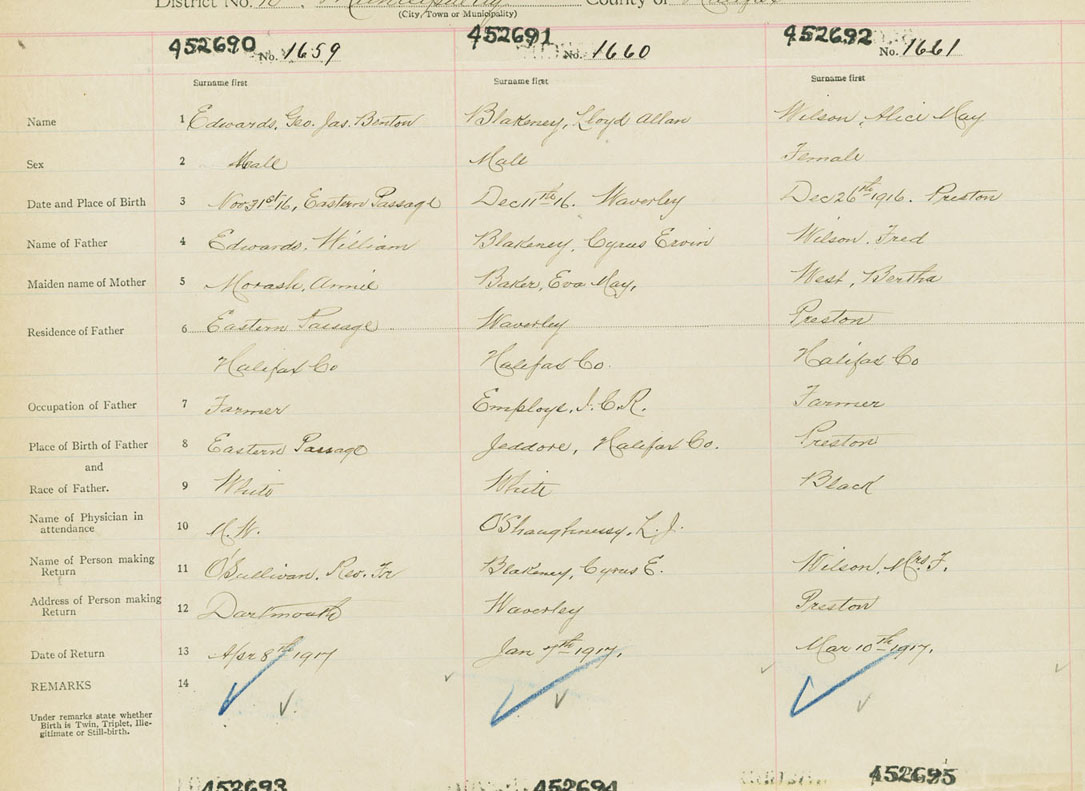 District No. Municipality County of Halifax
(City, Town or Municipality)
452690 No. 1659 452691 No. 1660 452692 No. 1661
Surname first Surname first Surname first
Name 1 Edwards, Geo. Jas. Benton Blakeney, Lloyd Allan Wilson, Alice May
Sex 2 Male Male Female
Date and Place of Birth 3 Nov 31st 16, Eastern Passage Dec 11th 16. Waverley Dec 26th 1916. Preston
Name of Father 4 Edwards, William Blakeney, Cyrus Ervin Wilson, Fred
Maiden name of Mother 5 Morash, Annie Baker, Eva May, West, Bertha
Residence of Father 6 Eastern Passage Waverley Preston
Halifax Co Halifax Co. Halifax Co
Occupation of Father 7 Farmer Employe, I.C.R. Farmer
Place of Birth of Father 8 Eastern Passage Jeddore, Halifax Co. Preston
and
Race of Father. 9 White White Black
Name of Physician in
attendance 10 M.W. O'Shaughnessy, L.J.
Name of Person making
Return 11 O'Sullivan, Rev. Fr Blakeney, Cyrus E. Wilson, Mrs F.
Address of Person making
Return 12 Dartmouth Waverley Preston
Date of Return 13 Apr 8th 1917 Jan 7th 1917. Mar 10th 1917.
REMARKS 14
Under remarks state whether
Birth is Twin, Triplet, Ille-
gitimate or Still-birth.
452693 452694 452695